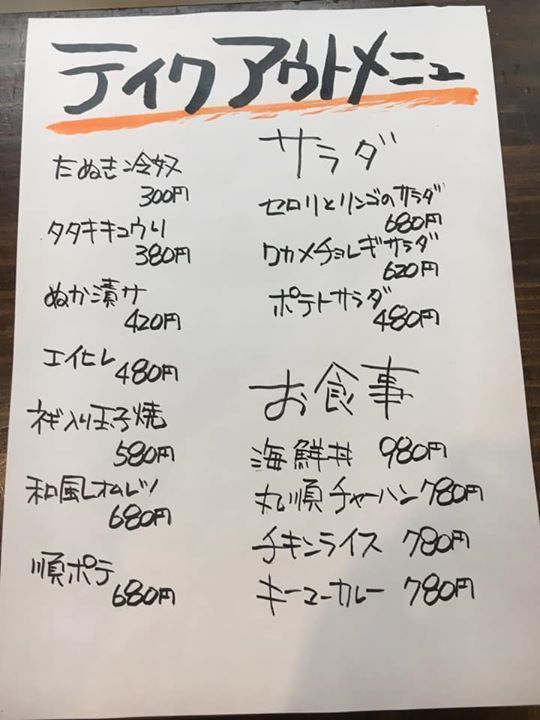 テイクアウトメニュー
たぬき冷奴
300円
タタキキュウリ
380円
ぬか漬ケ
420円
エイヒレ 480円
ネギ入り玉子焼
580円
和風オムレツ
680円
順ポテ
680円
サラダ
セロリとリンゴのサラダ
680円
ワカメチョレギサラダ
620円
ポテトサラダ
480円
お食事
海鮮丼 980円
丸順チャーハン 780円
チキンライス 780円
キーマカレー 780円